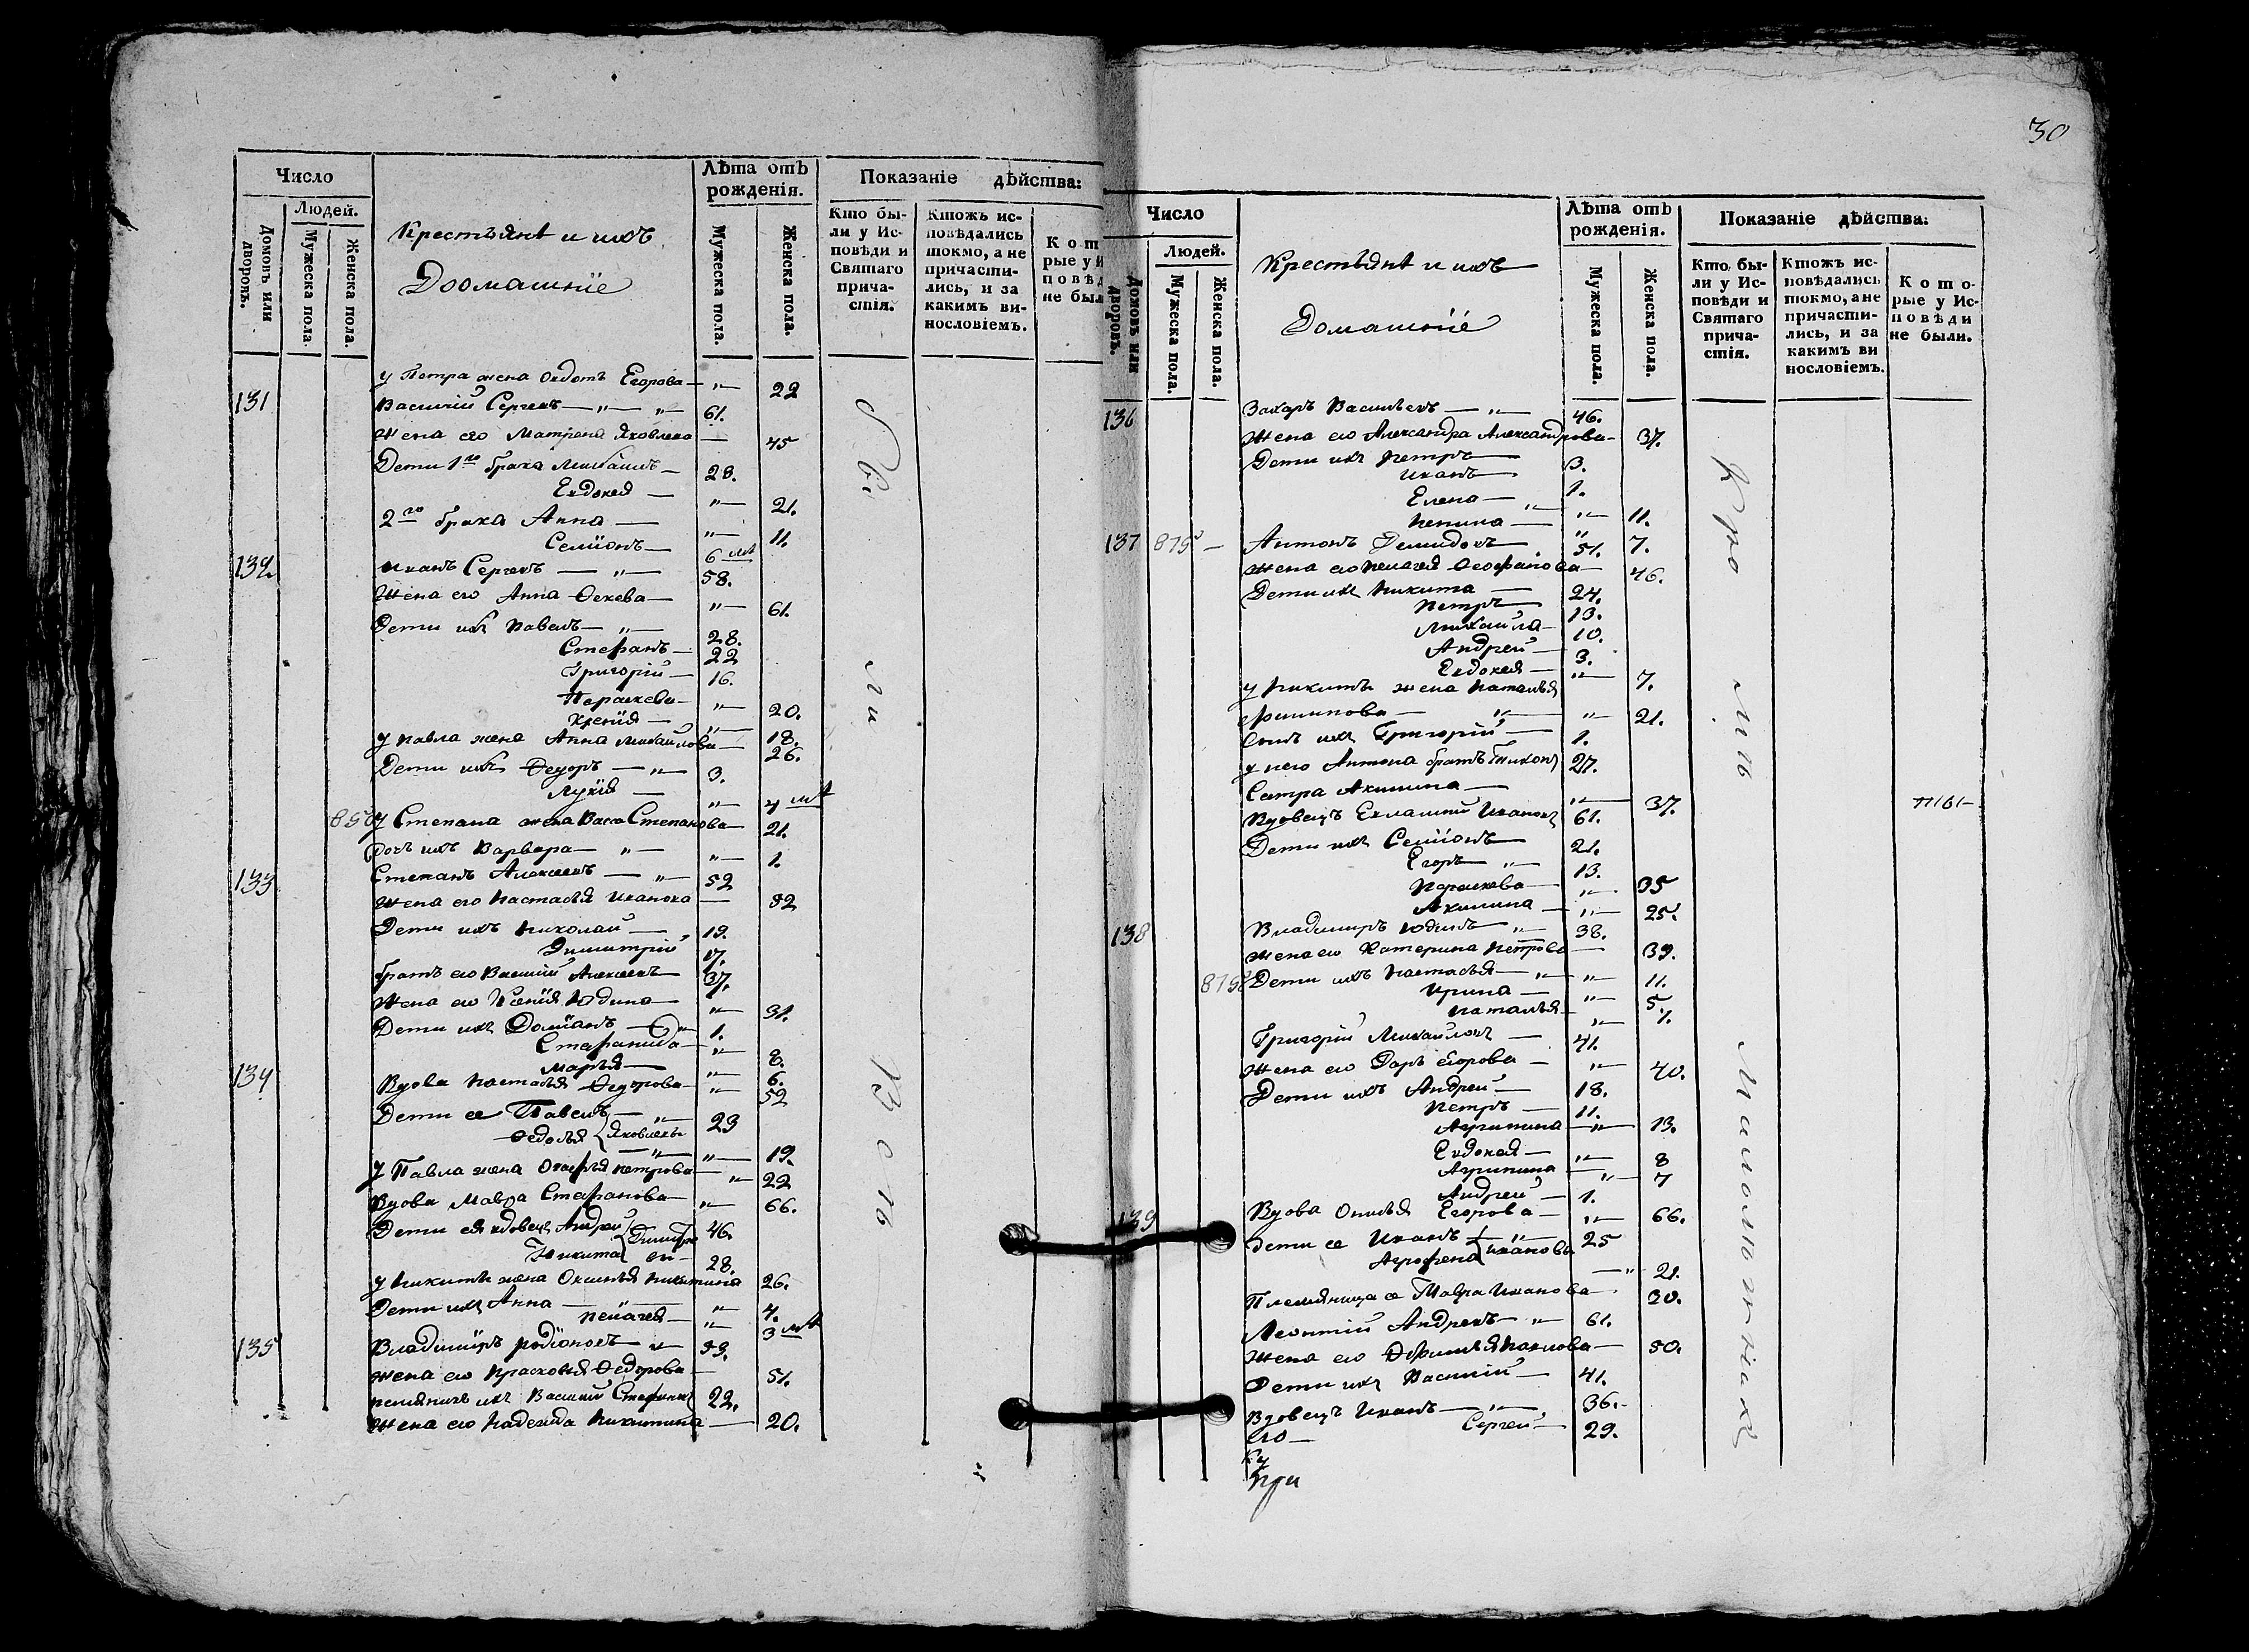 Число
Людей.
Домовъ или дворовъ.
Мужеска пола.
Женска пола.
Крестьянѣ и ихъ
Доомашнїе
Лѣта отъ рожденія.
Мужеска пола.
Женска пола.
Показаніе дѣйства:
Кто бы-
ли у Ис-
повѣди и
Святаго
прича-
стія.
Ктожъ ис-
повѣдались
токмо, а не
причасти-
лись, и за
какимъ ви-
нословіемъ.
Кот
рые у И
повѣд
не был
у Петра жена Овдотъ Егорова — " — 22
131 Василий Сергеевъ — " — " — 61.
Жена его Матрена Яковлева — 45
Дети 1го брака Михаилъ — 28.
Евдокея — " — 21.
2го брака Анна — " — 11.
Семїонъ — 6 мѣ
132. Иванъ Сергеевъ — " — 58.
Жена его Анна Фокева — " — 61.
Дети ихъ Павелъ — " — 28.
Стефанъ — 22
Григорій — 16.
Параскева — " — 20.
Ксенїя — " — 18.
у Павла жена Анна Михайлова — 26.
Дети ихъ Федоръ — " — 3.
Лукїя — " — 4 мѣ
у Степана жена Васса Степанова — 21.
Дочь ихъ Варвара — " — " — 1.
133 Степанъ Алексеевъ — " — 52
Жена его Настасья Иванова — 52
Дети ихъ Николай — 19.
Димитрій 17.
братъ его Василий Алексеевъ — 37.
Жена его Ксенїя Юдина — " — 31.
Дети ихъ Домїанъ — " — 1.
Стефанида — " — 8.
Марья — " — 6.
134 Вдова Настасья Федорова — " — 52
Дети ее Павелъ — " — 23
Федосья { Яковлевы — " — 19.
у Павла жена Офимья Петрова — " — 22
Вдова Мавра Стефанова — " — 66.
Дети ея вдовецъ Андрей 46.
Никита 28.
у Никиты жена Оксинья Никитина 26.
Дети ихъ Анна — " — 4.
Пелагея — " — 3 мѣ
135 Владимїръ Родїоновъ — " — 53.
жена его Прасковья Федорова — 51.
племяникъ ихъ Василий Стефановъ 22.
Жена его Надежда Никитина — 20.
30
Число
Людей.
Домовъ или дворовъ.
Мужеска пола.
Женска пола.
Крестьянѣ и ихъ
Домашнїе
Лѣта отъ рожденія.
Мужеска пола.
Женска пола.
Показаніе дѣйства:
Кто бы-
ли у Ис-
повѣди и
Святаго
прича-
стія.
Ктожъ ис-
повѣдались
токмо, а не
причасти-
лись, и за
какимъ ви
нословіемъ.
Кото-
рые у Ис-
повѣди
не были.
136 Захаръ Васильевъ — " — 46.
Жена его Александра Александрова — 37.
Дети ихъ Петръ — 3.
Иванъ — 1.
Елена — " — " — 11.
" 7.
137 Антонъ Демидовъ 51.
Жена его Пелагея Феофанова — 46.
Дети ихъ Никита — 24.
Петръ — 13.
Михаила — 10.
Андрей — 3.
Евдокея — " — 7.
у Никиты жена Наталья
Филипова — " — " — 21.
Сынъ ихъ Григорїй — 1.
у него Антона братъ Тихонъ 27.
Сестра Акилина — " — 37.
Вдовецъ Евлампий Ивановъ 61.
Дети ихъ Семїонъ 21.
Егоръ " — 13.
Параскева — " — 35
Акилина — " — 25.
138 Владимиръ Юдинъ — " — 38.
Жена его Катерина Петрова — 39.
Дети ихъ Настасья — " — " — 11.
Ирина — " — 5.
Наталья — " — 1.
Григорїй Михайловъ — 41.
Жена его Дарь Егорова — " — 40.
Дети ихъ Андрей — 18.
Петръ — 11.
Агрипина — " — 13.
Евдокея — " — 8
Агрипина — " — 7
Андрей — 1.
139 Вдова Егорова — " — 66.
Дети ее Иванъ " 25
Агрофена { Ивановы — " 21.
Племяница ее Мавра Иванова — 30.
Леонтий Андреевъ — " 61.
Жена его Павлова — 50.
Дети ихъ Василий — 41.
Вдовецъ Иванъ — " — 36.
Сергей — 29.
его —